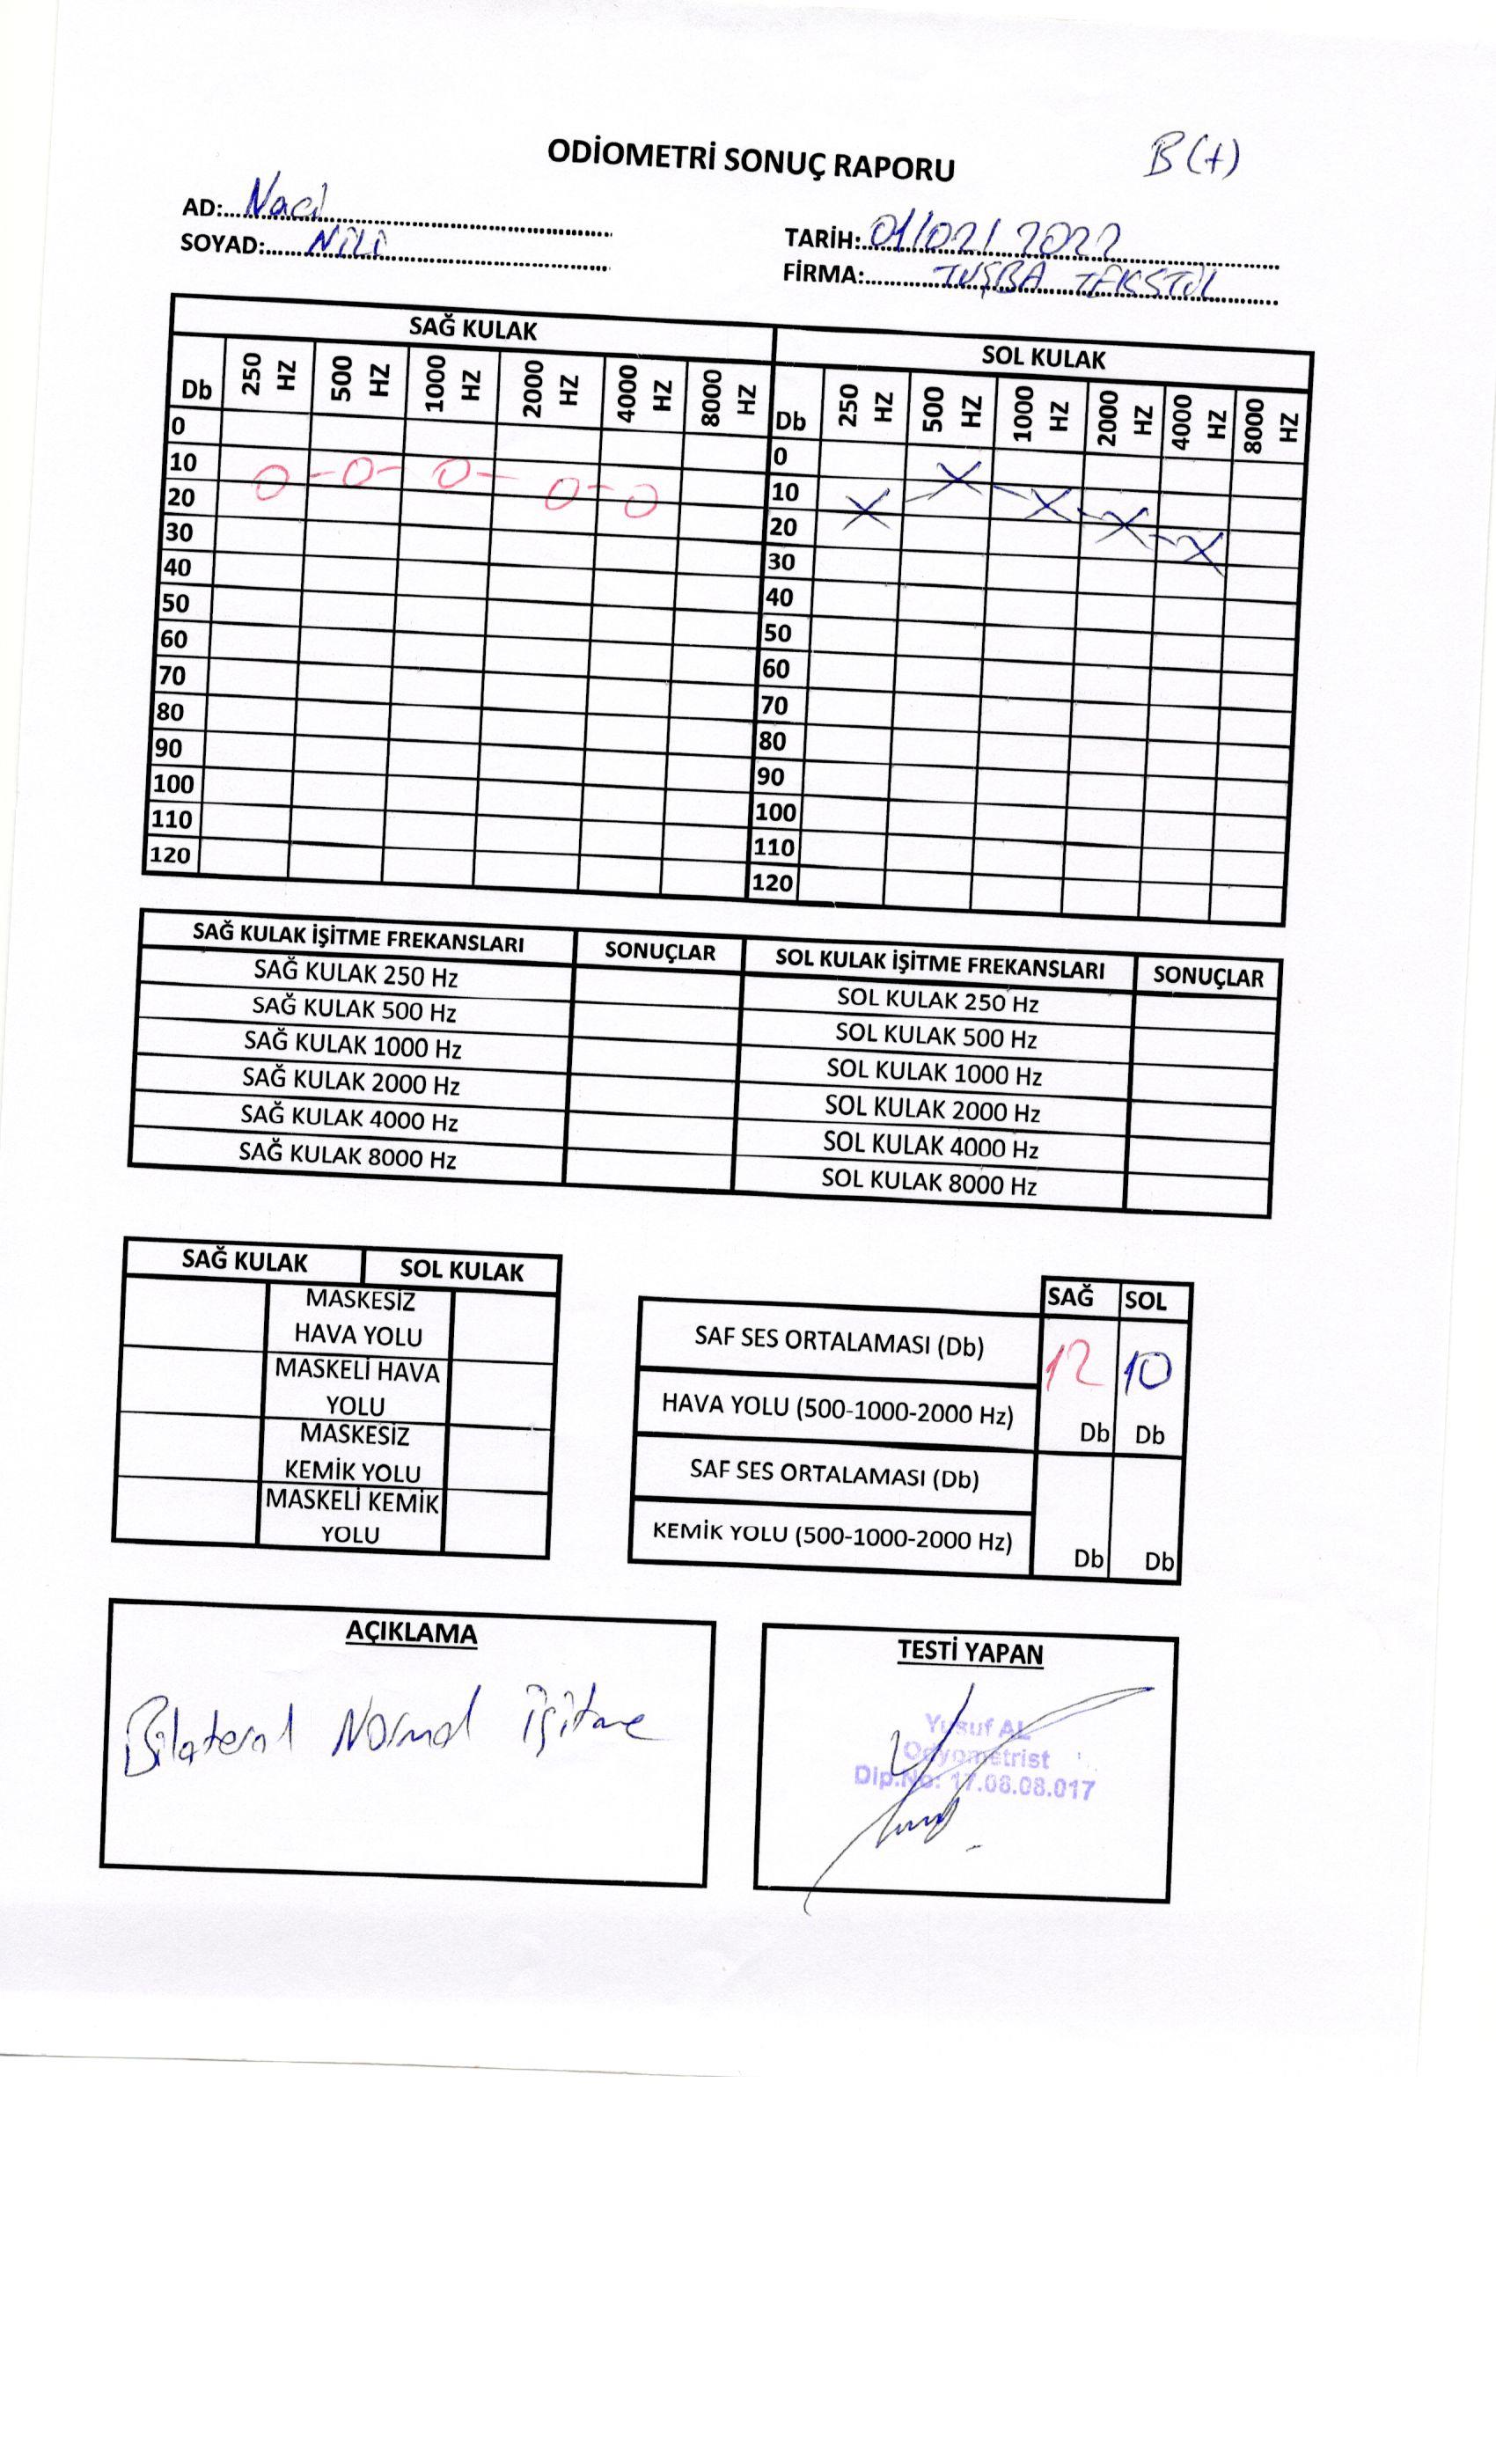 ODİOMETRİ SONUÇ RAPORU
B(+)
AD: Naci
SOYAD: NİLİ
TARİH: 01/02/2022
FİRMA: TUŞBA TEKSTİL
SAĞ KULAK SOL KULAK
Db 250 HZ 500 HZ 1000 HZ 2000 HZ 4000 HZ 8000 HZ Db 250 HZ 500 HZ 1000 HZ 2000 HZ 4000 HZ 8000 HZ
0 0
10 10
20 20
30 30
40 40
50 50
60 60
70 70
80 80
90 90
100 100
110 110
120 120
SAĞ KULAK İŞİTME FREKANSLARI SONUÇLAR SOL KULAK İŞİTME FREKANSLARI SONUÇLAR
SAĞ KULAK 250 Hz SOL KULAK 250 Hz
SAĞ KULAK 500 Hz SOL KULAK 500 Hz
SAĞ KULAK 1000 Hz SOL KULAK 1000 Hz
SAĞ KULAK 2000 Hz SOL KULAK 2000 Hz
SAĞ KULAK 4000 Hz SOL KULAK 4000 Hz
SAĞ KULAK 8000 Hz SOL KULAK 8000 Hz
SAĞ KULAK SOL KULAK
MASKESİZ
HAVA YOLU
MASKELİ HAVA
YOLU
MASKESİZ
KEMİK YOLU
MASKELİ KEMİK
YOLU
SAĞ SOL
SAF SES ORTALAMASI (Db) 12 10
HAVA YOLU (500-1000-2000 Hz) Db Db
SAF SES ORTALAMASI (Db)
KEMİK YOLU (500-1000-2000 Hz) Db Db
AÇIKLAMA
Bilateral Normal İşitme
TESTİ YAPAN
Yusuf AL
Odyometrist
Dip.No: 17.08.08.017